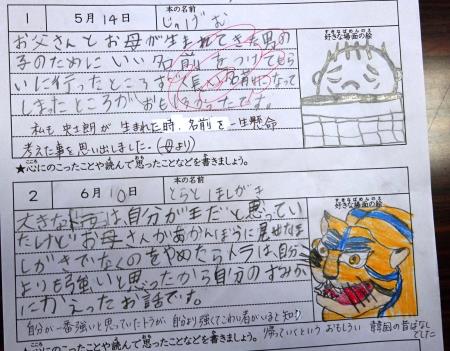 1 5月14日 本の名前 じゅげむ
好きな場面の絵
お父さんとお母が生まれてきた男の
子のためにいい名前をつけてもら
いに行ったところすごく長い名前になって
しまったところがおもしろかったです。
私も史士朗が生まれた時、名前を一生懸命
考えた事を思い出しました。(母より)
★心にのこったことや読んで思ったことなどを書きましょう。
2 6月10日 本の名前 とらとほしがき
好きな場面の絵
大きなトラは自分が王だと思ってい
たけどお母さんがあかんぼうに見せたほ
しがきでなくのをやめたらトラは、自分
よりも強いと思ったから自分のすみか
にかえったお話です。
自分が一番強いと思っていたトラが、自分より強くてこわい者がいると知り
帰っていくというおもしろい韓国の昔ばなし
でした
★心にのこったことや読んで思ったことなどを書きましょう。